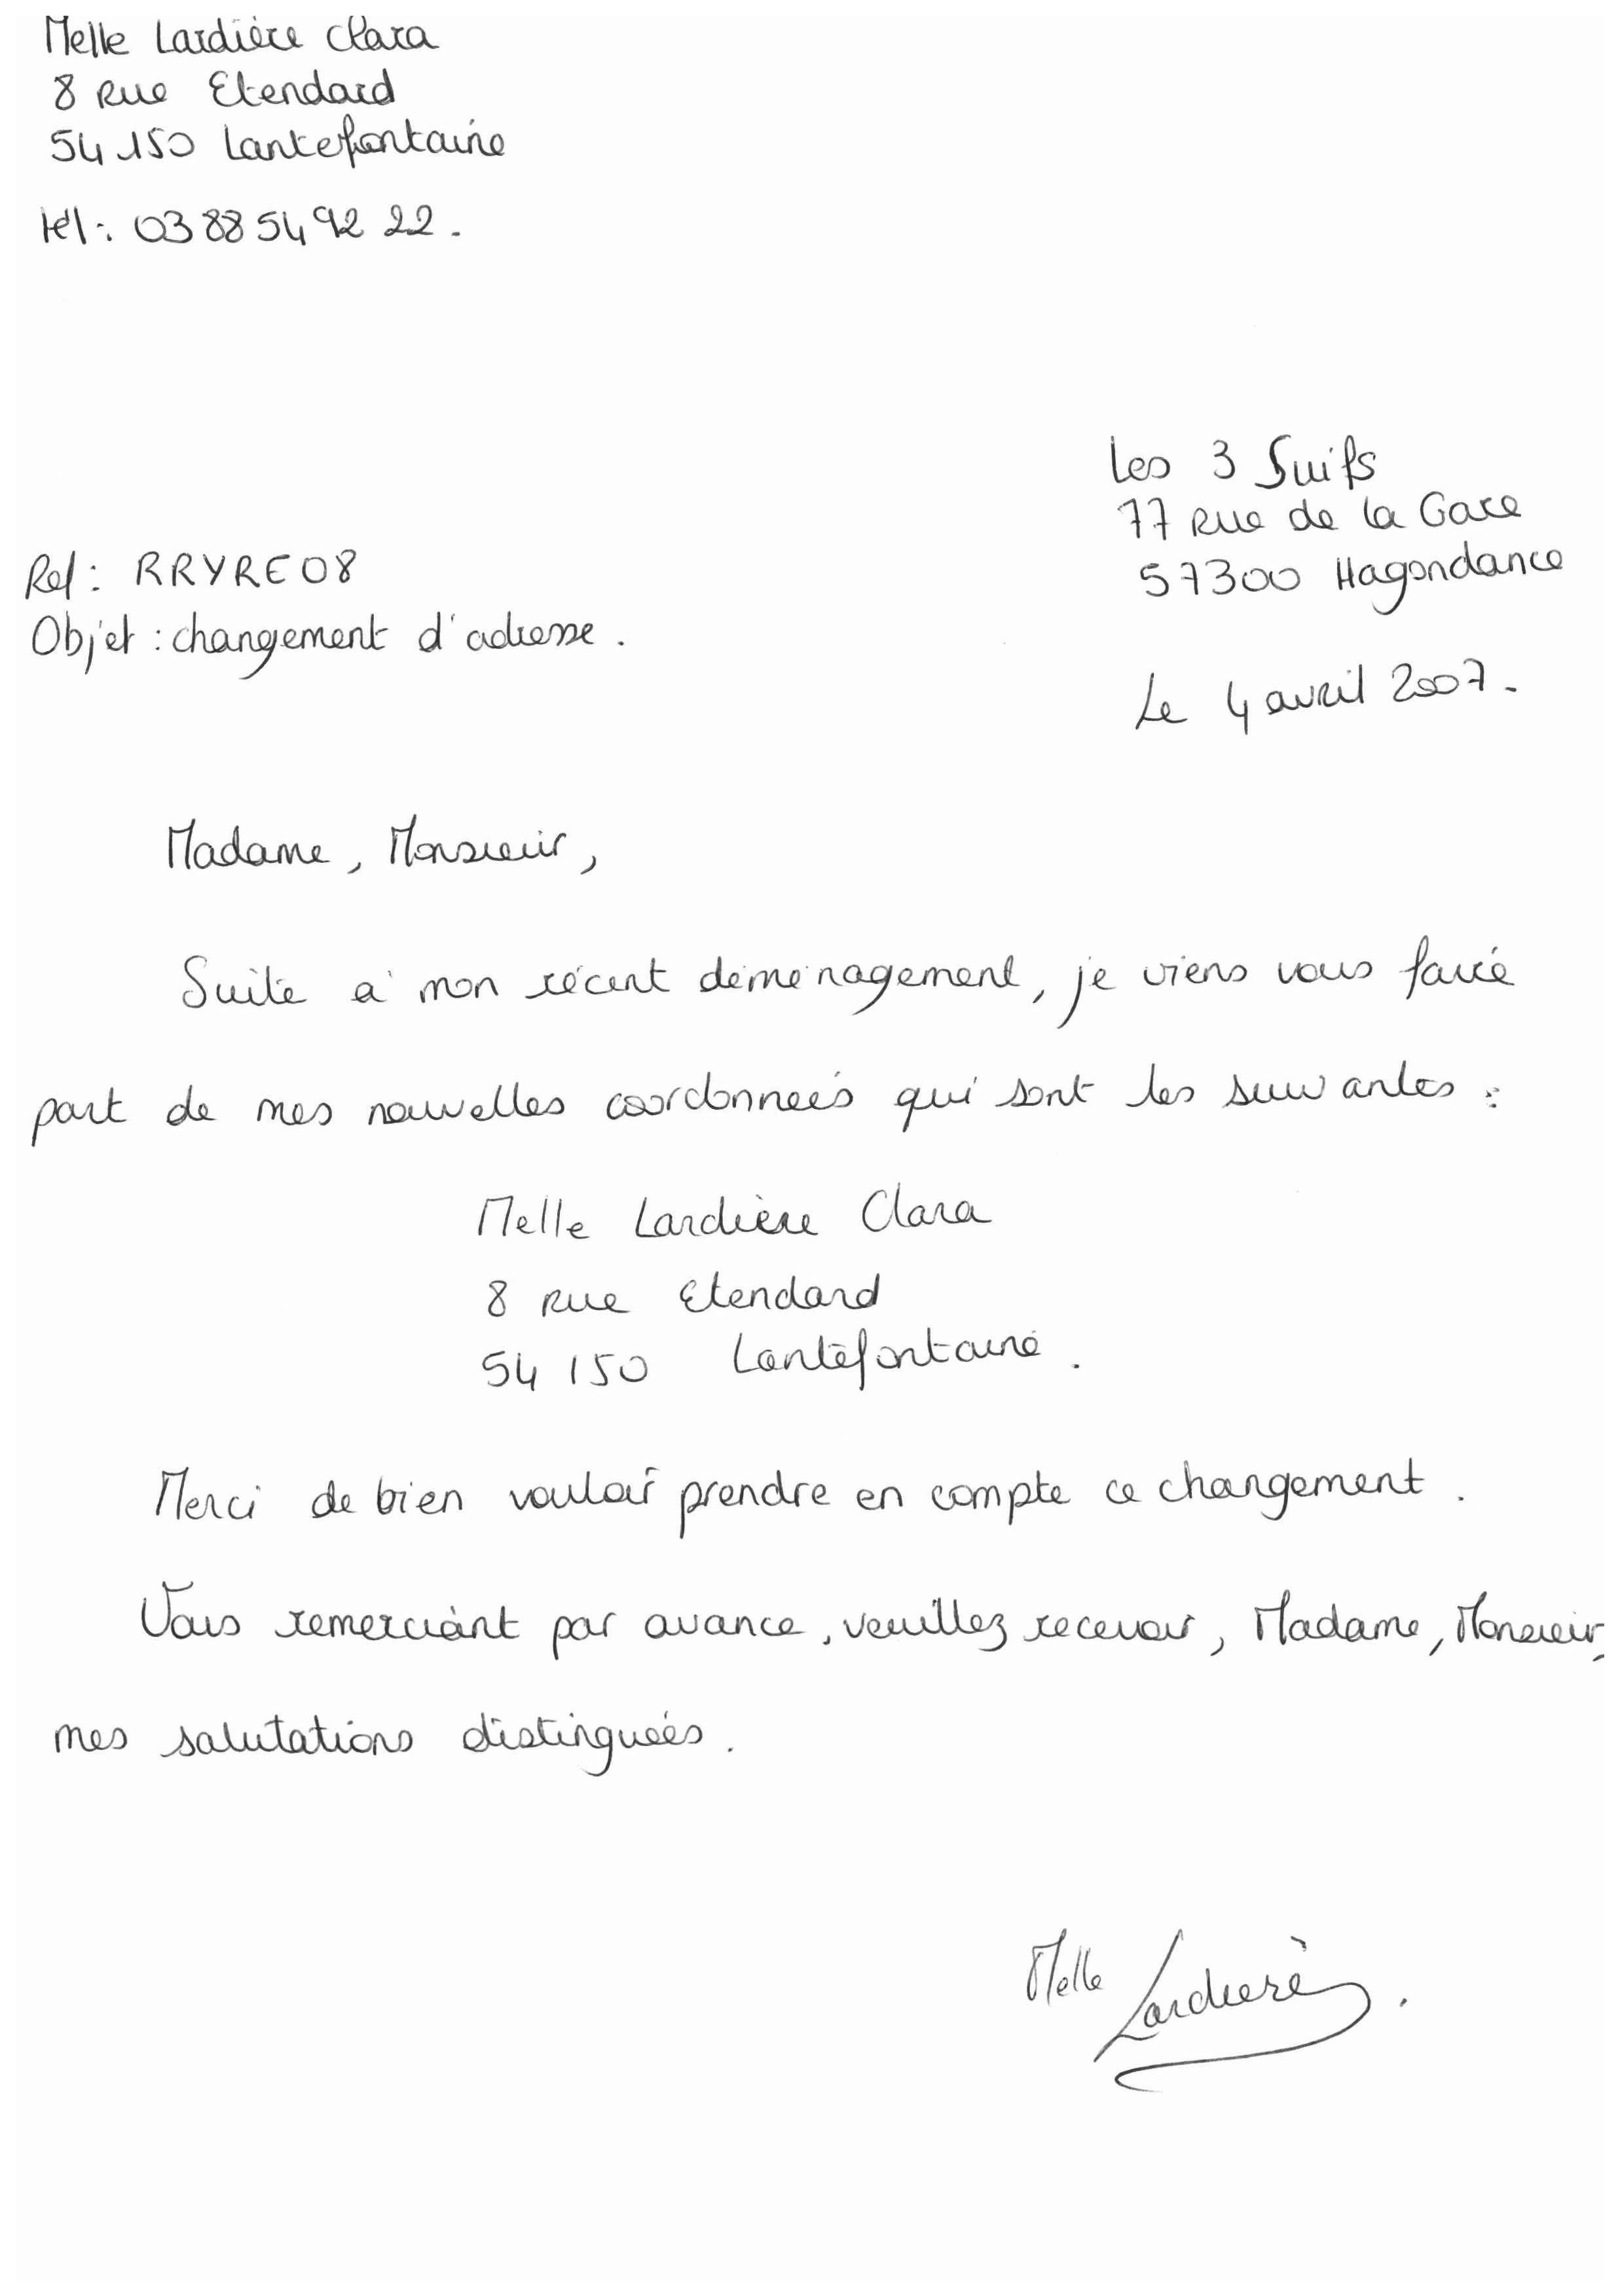 Melle Lardière Clara
8 Rue Etendard
54 150 Lantefontaine
tél : 03 88 54 92 22.
Les 3 Suifs
77 Rue de la Gare
57300 Hagondance
Ref : RRYRE08
Objet : changement d'adresse.
Le 4 avril 2007.
Madame, Monsieur,
Suite à mon récent déménagement, je viens vous faire
part de mes nouvelles coordonnées qui sont les suivantes :
Melle Lardière Clara
8 rue Etendard
54 150 Lantefontaine.
Merci de bien vouloir prendre en compte ce changement.
Vous remerciant par avance, veuillez recevoir, Madame, Monsieur,
mes salutations distinguées.
Melle Lardière.